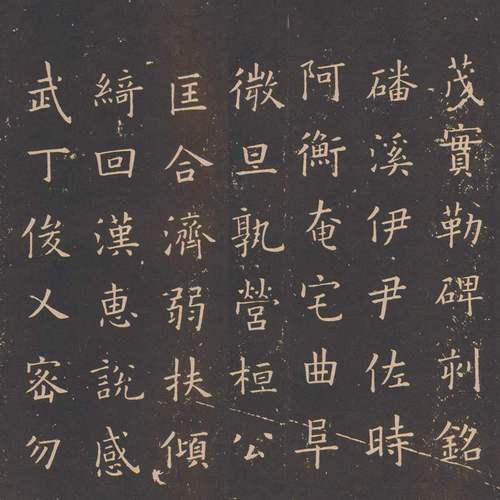 茂實勒碑刻銘
磻溪伊尹佐時
阿衡奄宅曲阜
微旦孰營桓公
匡合濟弱扶傾
綺回漢惠說感
武丁俊乂密勿